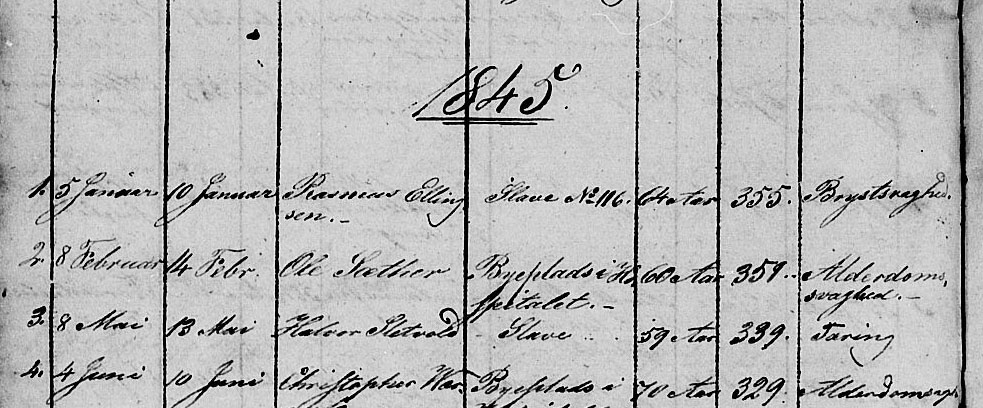 1845.
1. 5 Januar 10 Januar Rasmus Elling Slave No 116. 64 Aar 355. Brystsvaghed.
sen.-
2. 8 Februar 14 Febr. Ole Sæther Byeplads i Ho 60 Aar 351. Alderdoms,
spitalet.- svaghed.-
3. 8 Mai 13 Mai Halvor Sletvold Slave 59 Aar 339. Taring
4. 4 Juni 10 Juni Christopher Byeplads i 70 Aar 329.